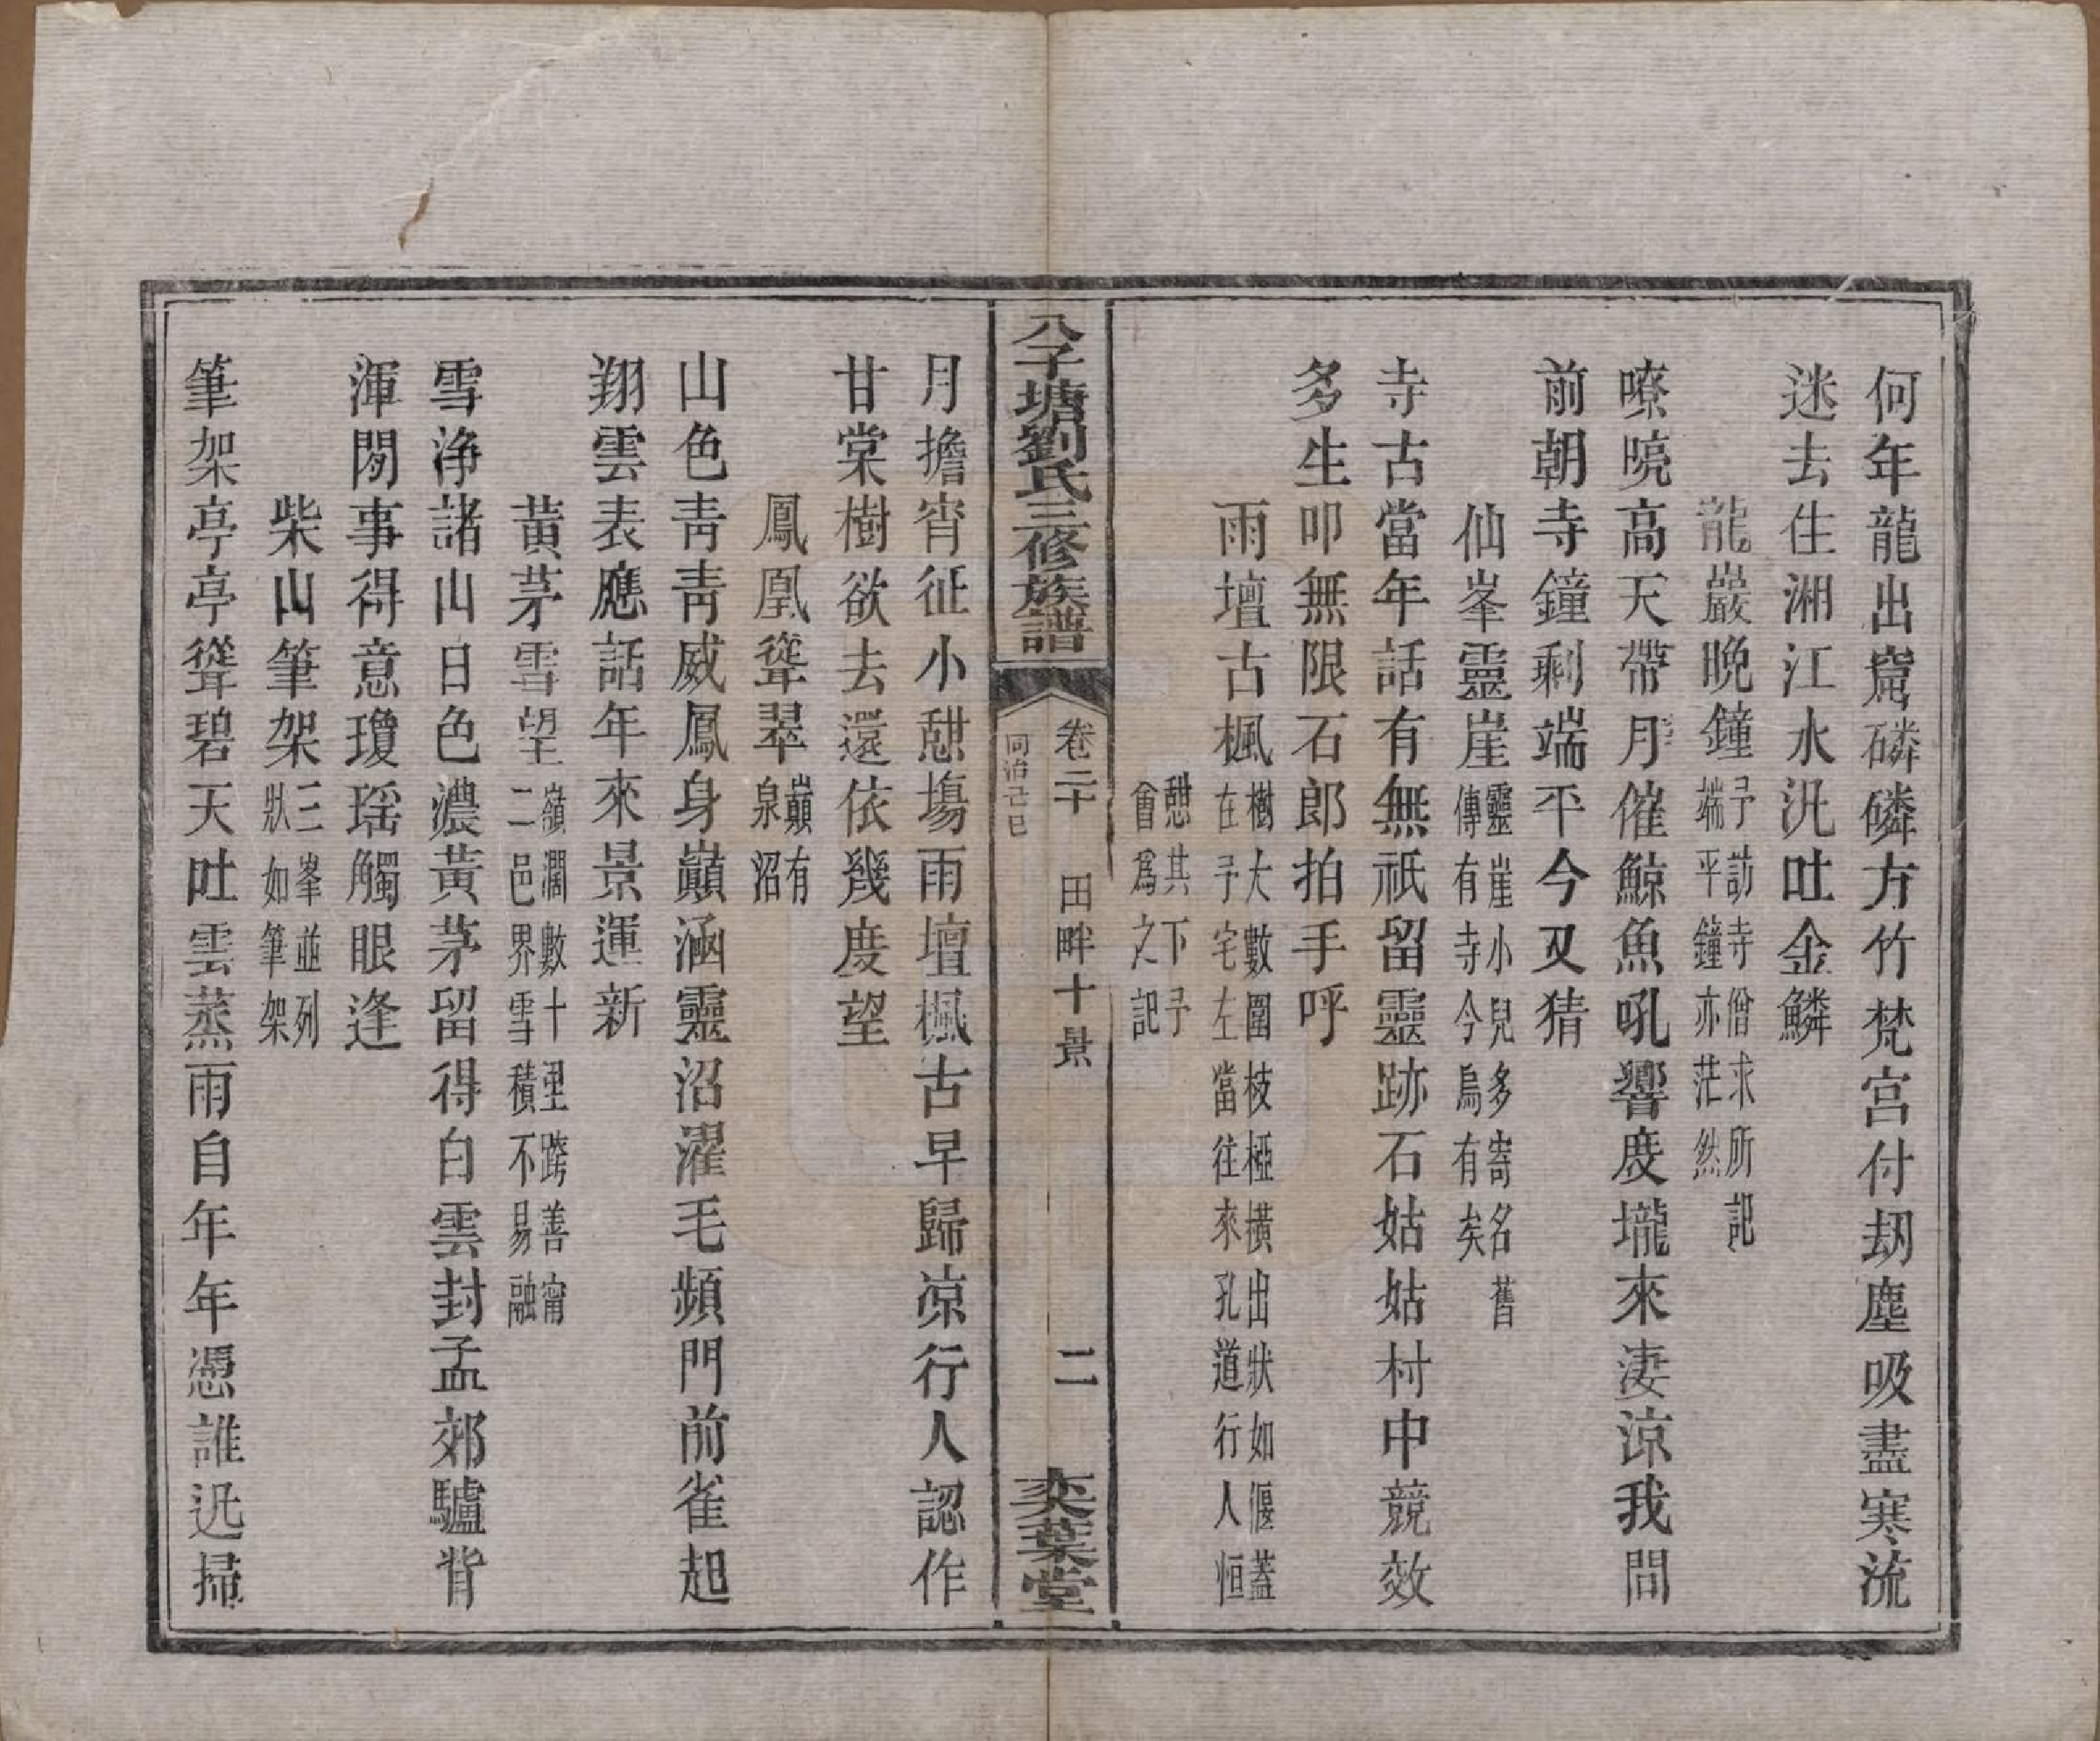 何年龍出窟磷磷方竹梵宮付劫塵吸盡寒流
迷去住湘江水汎吐金鱗
龍巖晚鐘予訪寺僧求所記
端平鐘亦茫然
嘹曉高天帶月催鯨魚吼響度壠來淒涼我問
前朝寺鐘剩端平今又猜
仙峯靈崖靈崖小兒多寄名舊
傳有寺今烏有矣
寺古當年話有無祇留靈跡石姑姑村中競效
多生叩無限石郎拍手呼
雨壇古楓樹大數圍枝椏橫出狀如偃蓋
在予宅左當往來孔道行人恒
憩其下予
會爲之記
八子塘劉氏三修族譜
卷二十 田畔十景 二
同治己巳
奕葉堂
月擔宵征小憇塲雨壇楓古早歸凉行人認作
甘棠樹欲去還依幾度望
鳳凰聳翠巓有
泉沼
山色靑靑威鳳身巓涵靈沼濯毛頻門前雀起
翔雲表應話年來景運新
黃茅雪望嶺濶數十里跨善甯
二邑界雪積不易融
雪浄諸山日色濃黃茅留得白雲封孟郊驢背
渾閒事得意瓊瑶觸眼逢
柴山筆架三峯並列
狀如筆架
筆架亭亭聳碧天吐雲蒸雨自年年憑誰迅掃